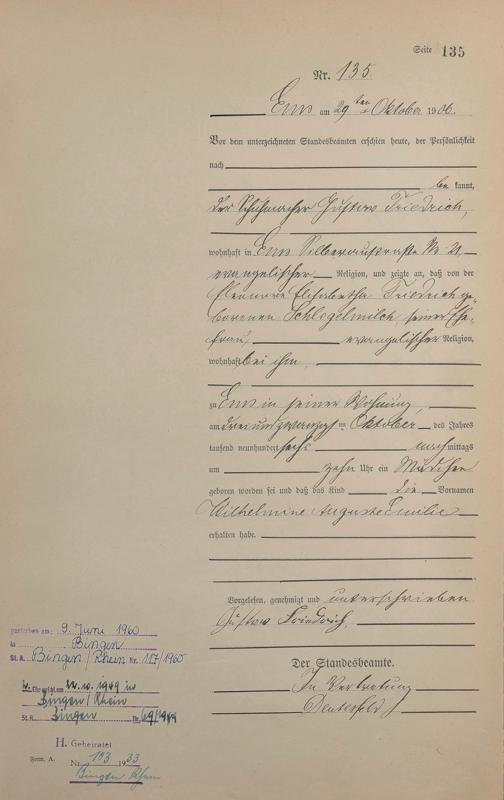 Seite 135
Nr. 135.
Ems am 29ten Oktober 1906.
Vor dem unterzeichneten Standesbeamten erschien heute, der Persönlichkeit
nach
be kannt,
der Schuhmacher Gustav Friedrich,
wohnhaft in Ems Silberaustraße No 21,
evangelischer Religion, und zeigte an, daß von der
Eleonore Elisabetha Friedrich ge-
borenen Schlegelmilch, seiner Ehe-
frau, evangelischer Religion,
wohnhaft bei ihm,
zu Ems in seiner Wohnung,
am dreiundzwanzigsten Oktober des Jahres
tausend neunhundert sechs nach mittags
um zehn Uhr ein Mädchen
geboren worden sei und daß das Kind die Vornamen
Wilhelmine Auguste Emilie
erhalten habe.
Vorgelesen, genehmigt und unterschrieben
Gustav Friedrich.
Der Standesbeamte.
In Vertretung
gestorben am: 9. Juni 1960
in Bingen
St. A. Bingen/Rhein Nr. 117/1960
2. Eheschl. am 22.10.1949 in
Bingen/Rhein
St. A. Bingen Nr. 69/1949
H. Geheiratet
Form. A. Nr. 103 1933
Bingen Rhein